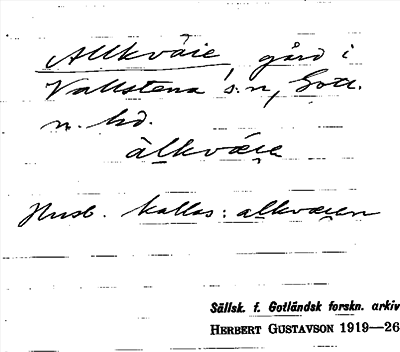 Allkväie, gård i
Vallstena s:n, Gotl.
n. hd.
àlkvæιε
Husb. kallas: alkvæien
Sällsk. f. Gotländsk forskn. arkiv
HERBERT GUSTAVSON 1919—26